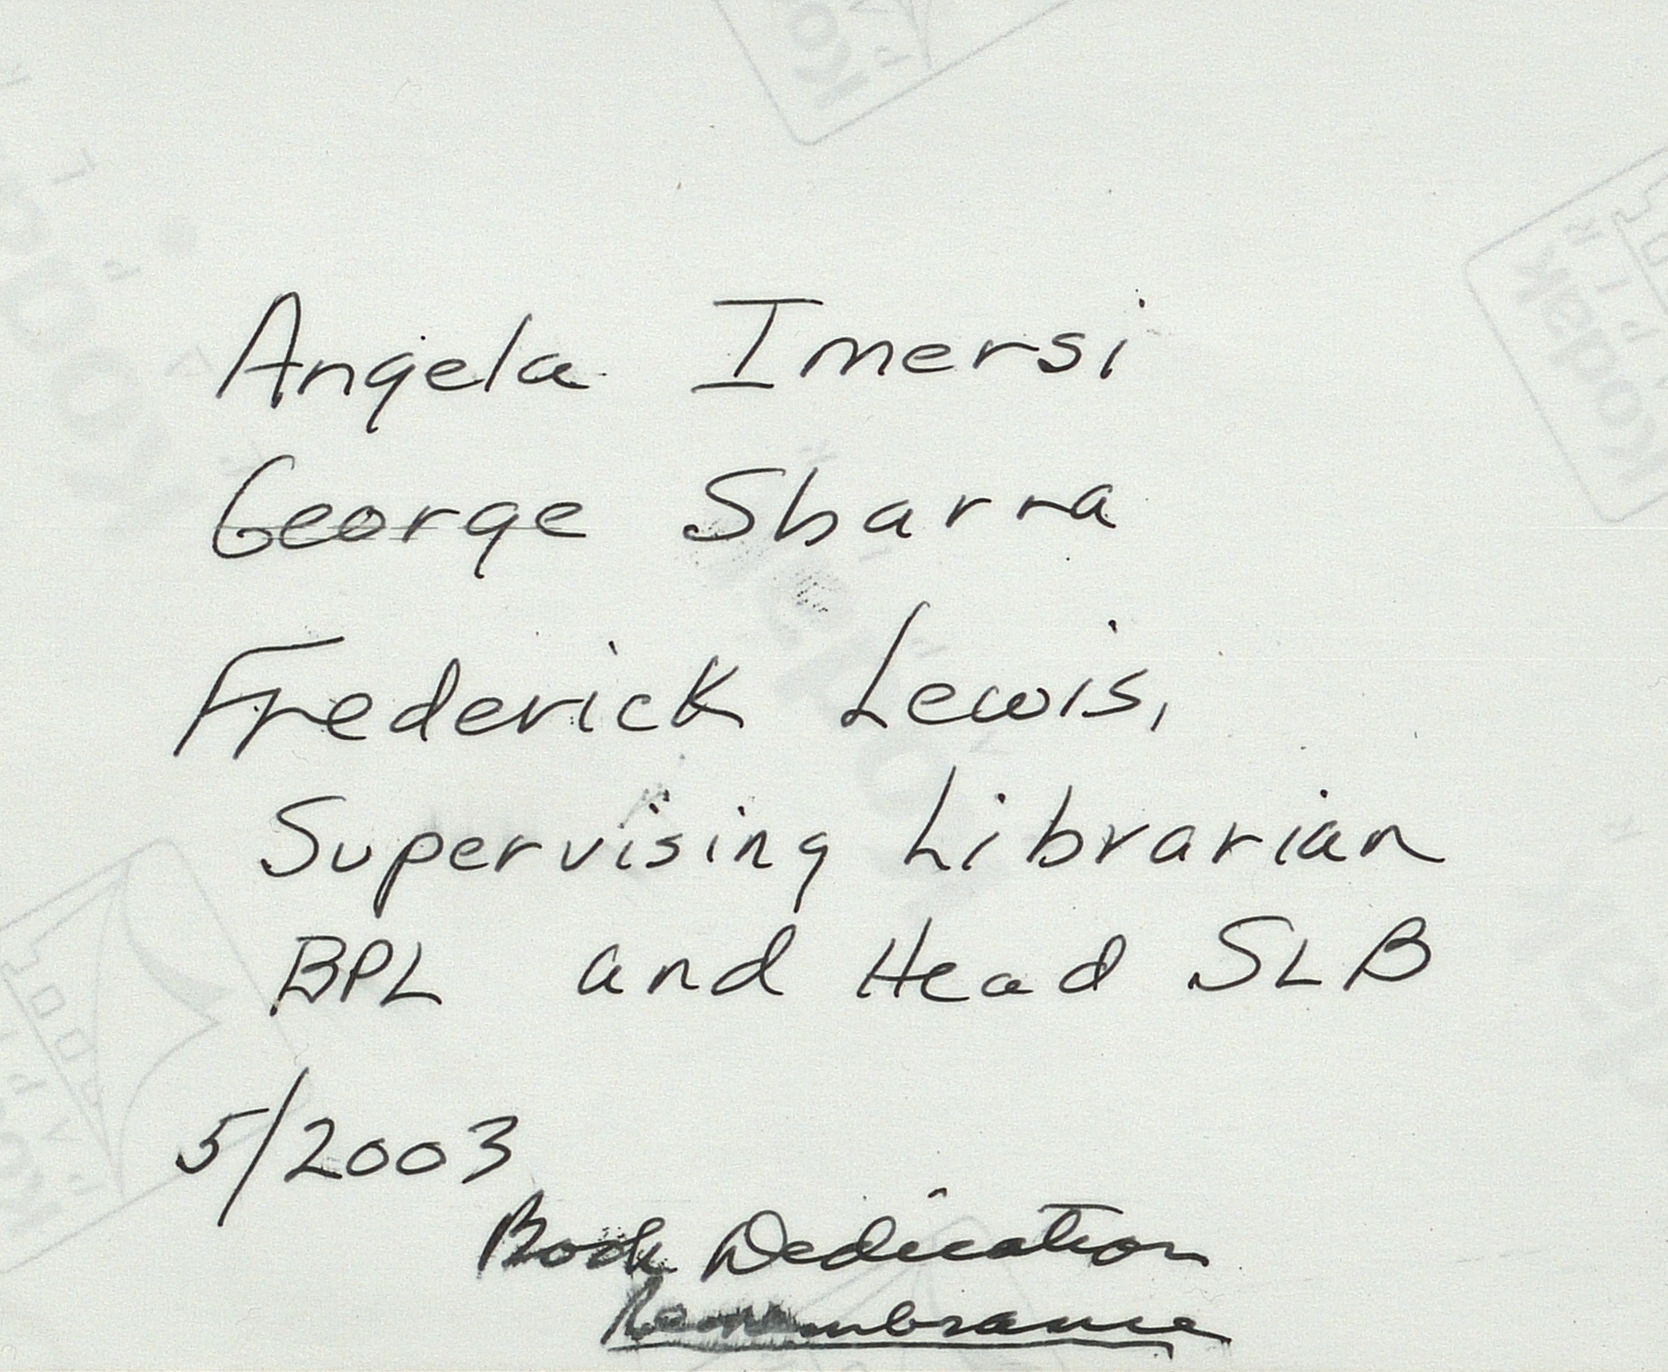 Angela Imersi
George Sbarra
Frederick Lewis,
Supervising Librarian
BPL and Head SLB
5/2003
Book Dedication
Remembrance